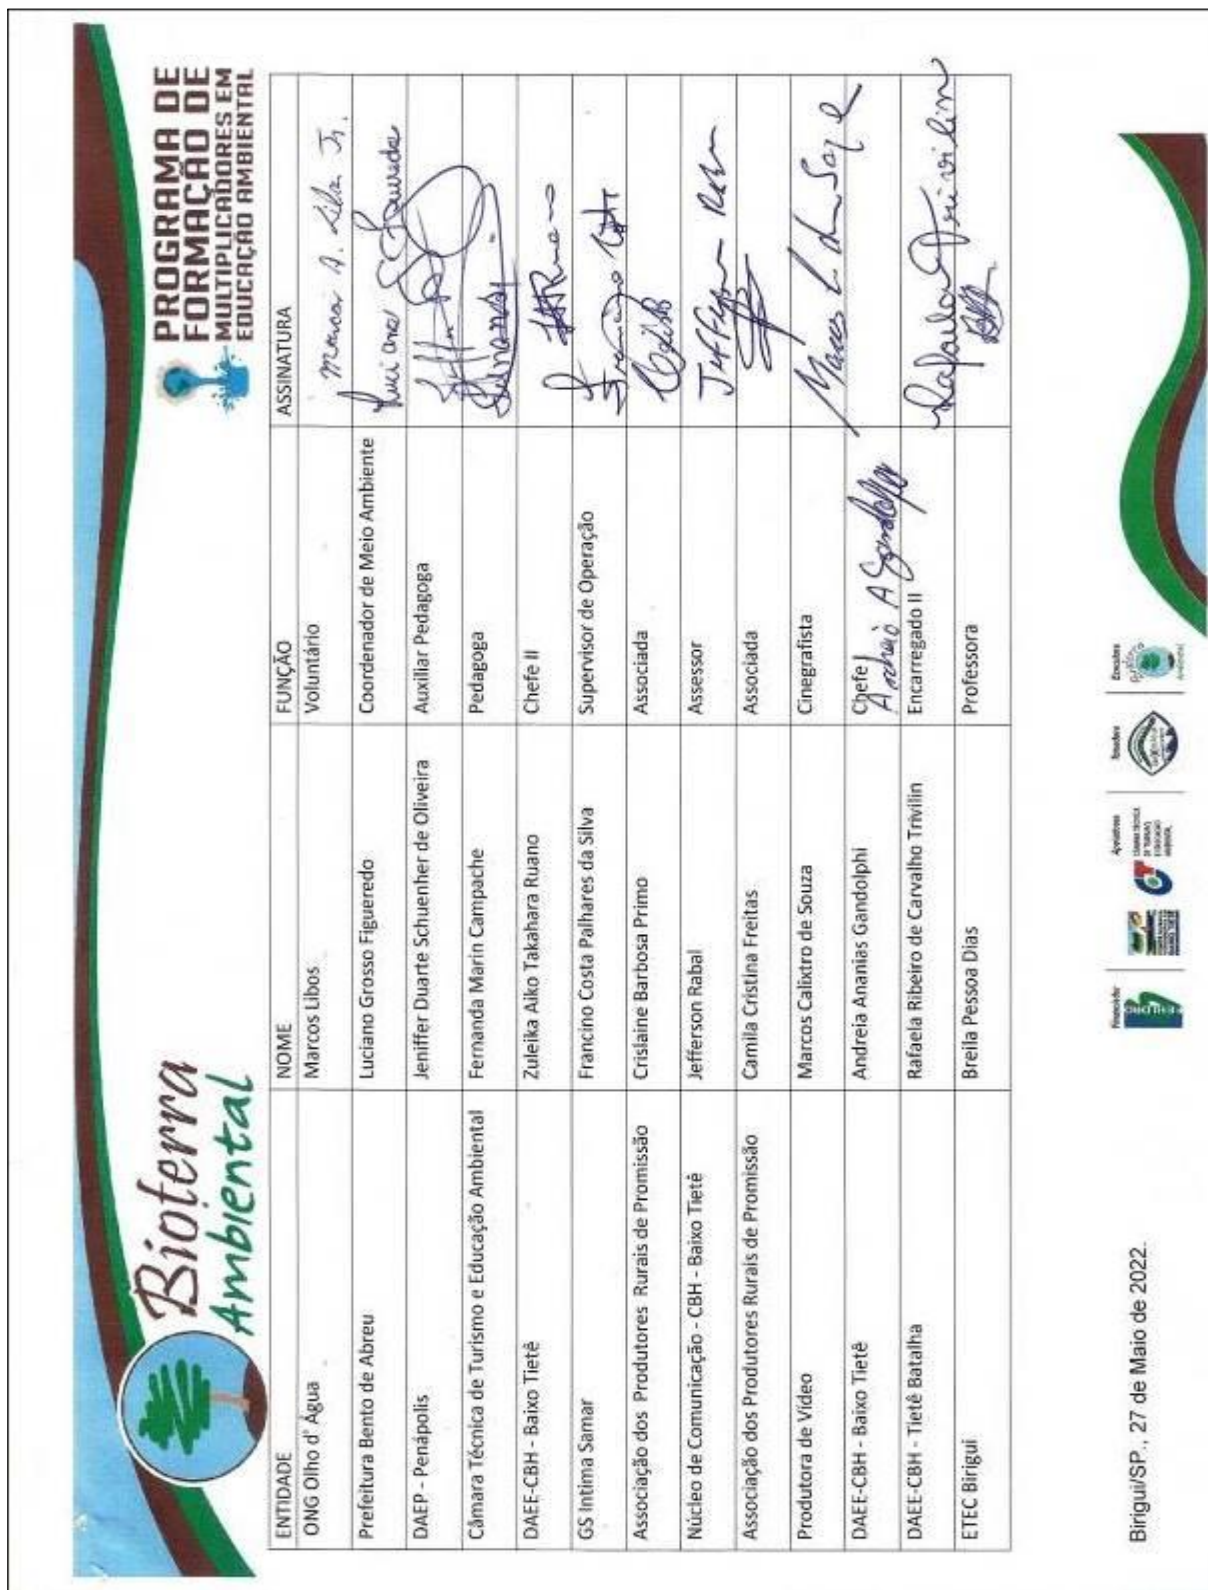 Bioterra
Ambiental
PROGRAMA DE
FORMAÇÃO DE
MULTIPLICADORES EM
EDUCAÇÃO AMBIENTAL
ENTIDADE NOME FUNÇÃO ASSINATURA
ONG Olho d' Água Marcos Libos Voluntário
Prefeitura Bento de Abreu Luciano Grosso Figueredo Coordenador de Meio Ambiente
DAEP - Penápolis Jeniffer Duarte Schuenher de Oliveira Auxiliar Pedagoga
Câmara Técnica de Turismo e Educação Ambiental Fernanda Marin Campache Pedagoga
DAEE-CBH - Baixo Tietê Zuleika Aiko Takahara Ruano Chefe II
GS Intima Samar Francino Costa Palhares da Silva Supervisor de Operação
Associação dos Produtores Rurais de Promissão Crislaine Barbosa Primo Associada
Núcleo de Comunicação - CBH - Baixo Tietê Jefferson Rabal Assessor Jefferson
Associação dos Produtores Rurais de Promissão Camila Cristina Freitas Associada
Produtora de Vídeo Marcos Calixtro de Souza Cinegrafista
DAEE-CBH - Baixo Tietê Andreia Ananias Gandolphi Chefe
DAEE-CBH - Tietê Batalha Rafaela Ribeiro de Carvalho Trivilin Encarregado II Rafaela Trivilin
ETEC Birigui Breila Pessoa Dias Professora
Birigui/SP., 27 de Maio de 2022.